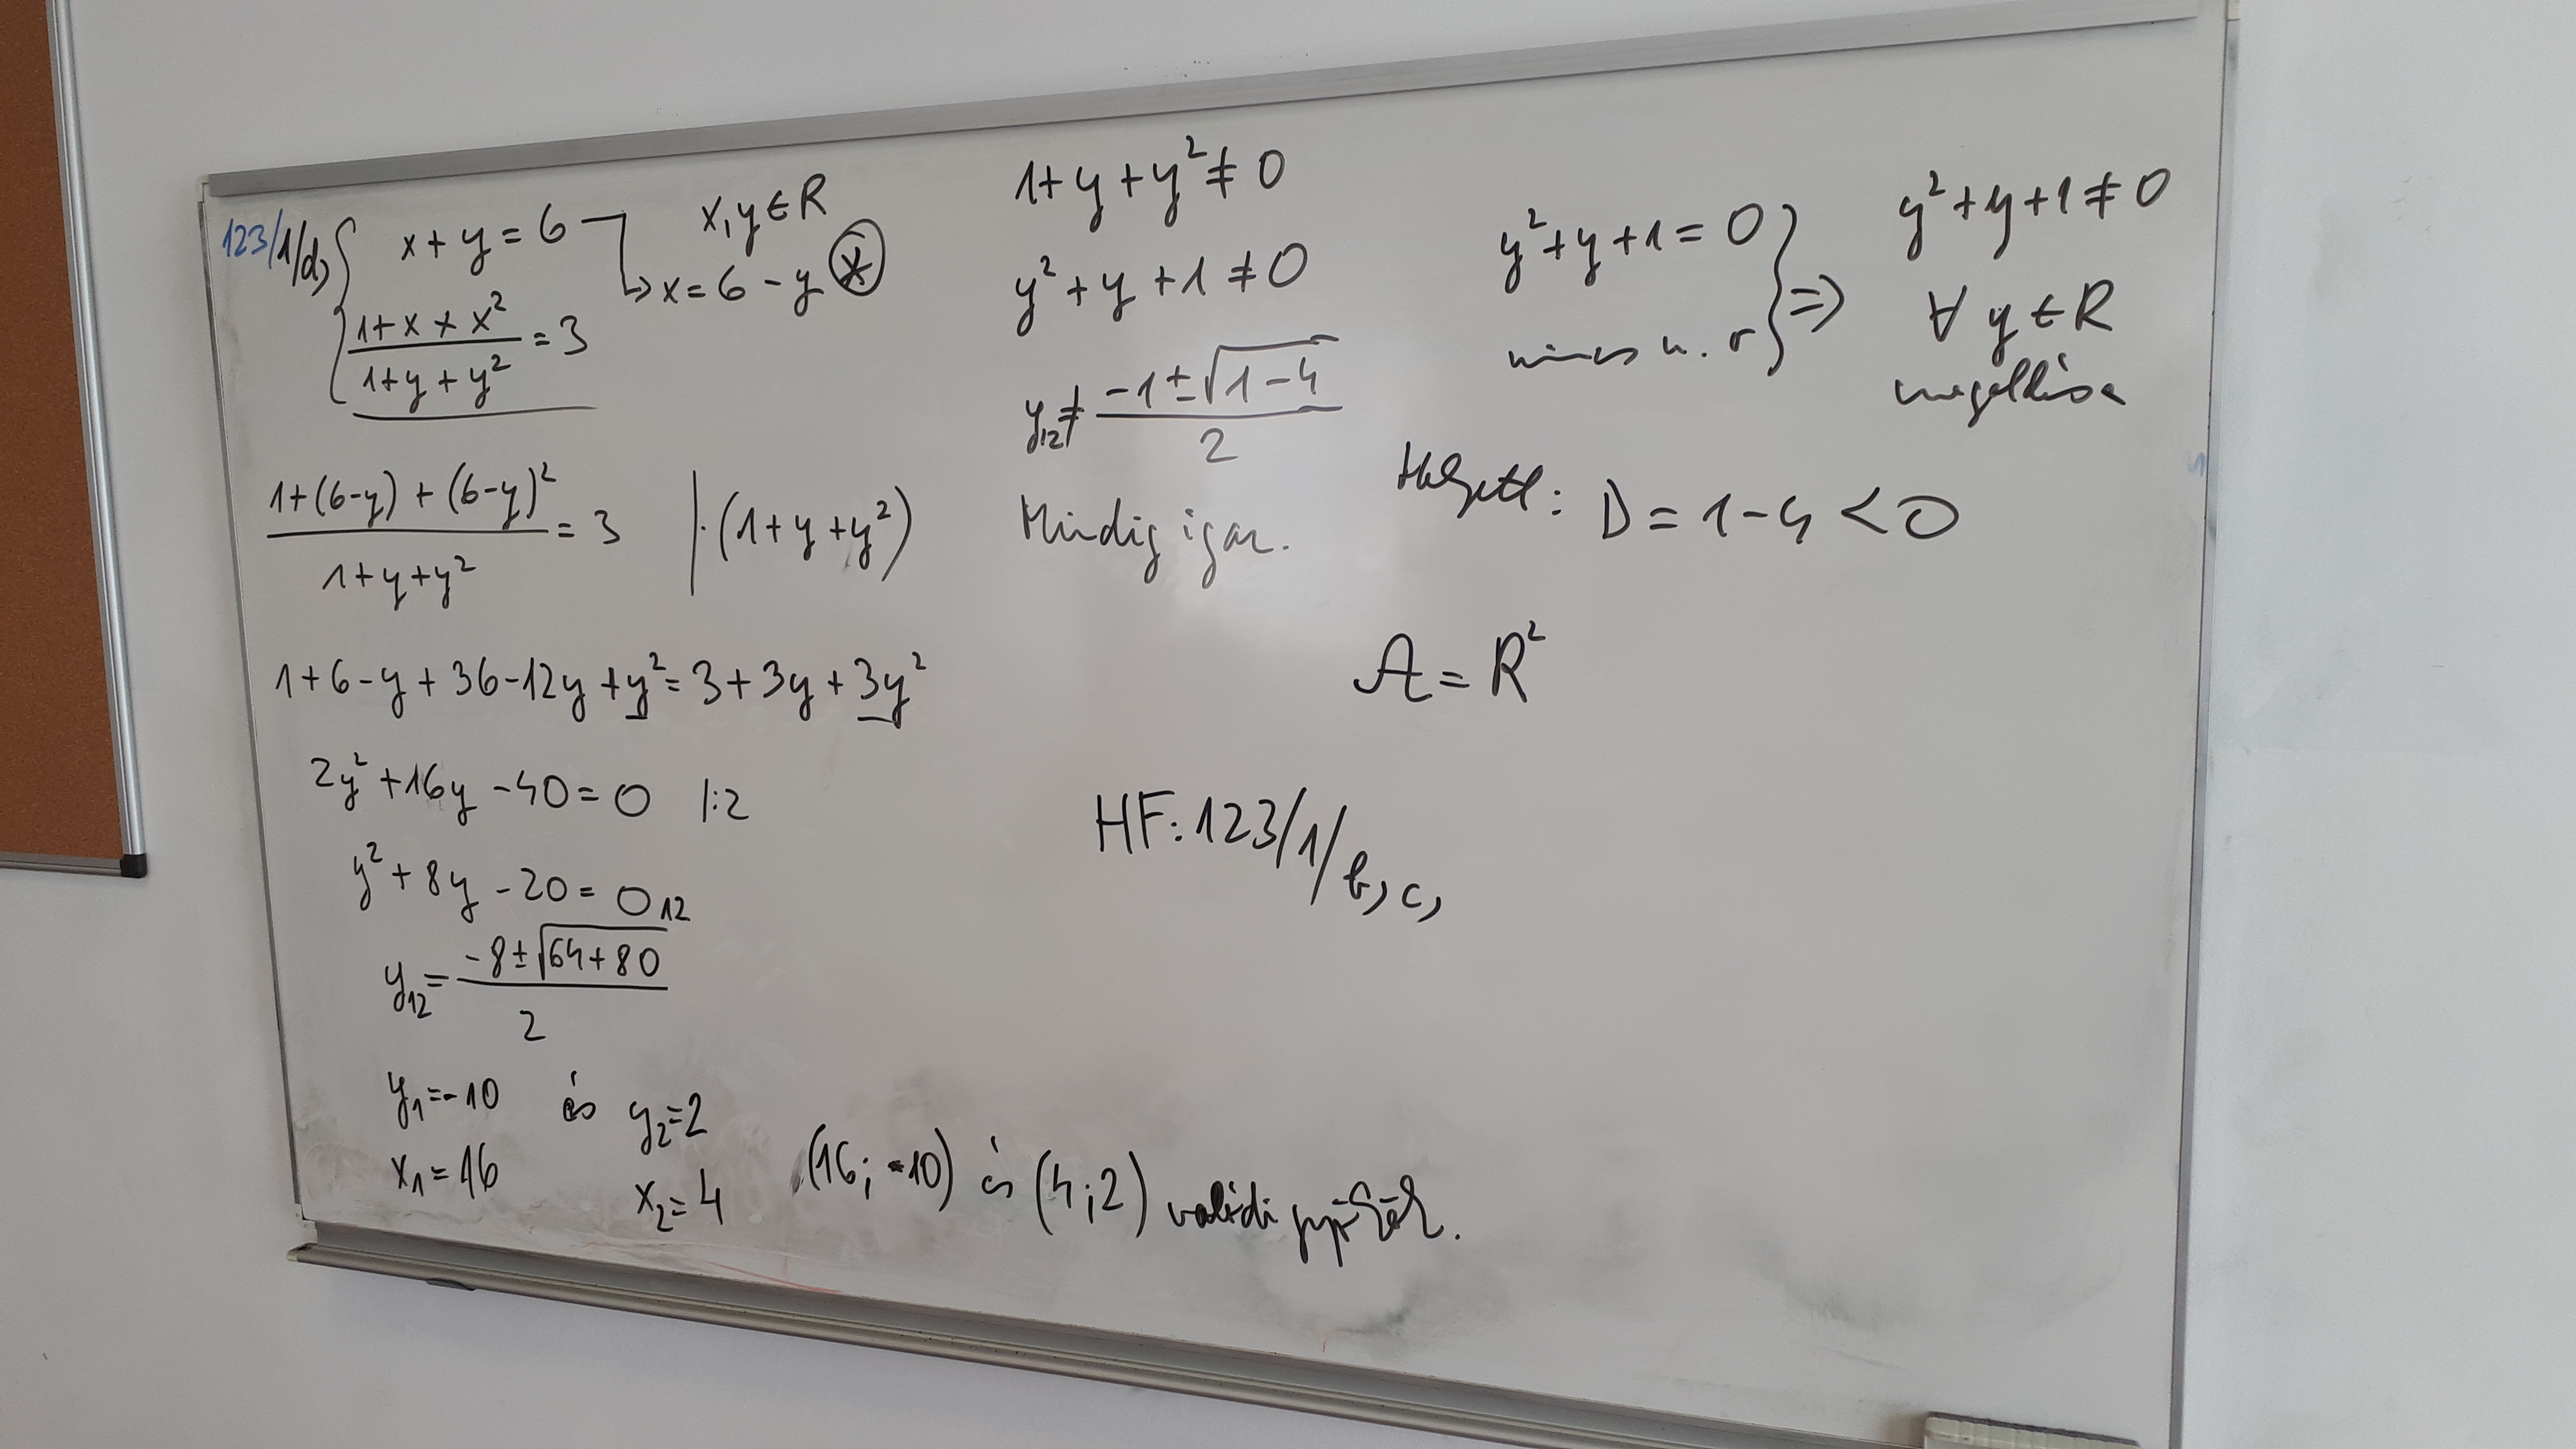 123/1/d, x + y = 6 x, y ∈ R
↳ x = 6 - y (*)
(1 + x + x²)/(1 + y + y²) = 3
(1 + (6-y) + (6-y)²)/(1 + y + y²) = 3 | · (1 + y + y²)
1 + 6 - y + 36 - 12y + y² = 3 + 3y + 3y²
2y² + 16y - 40 = 0 |:2
y² + 8y - 20 = 0
y₁₂ = (-8 ± √(64 + 80))/2
12
y₁ = -10 és y₂ = 2
x₁ = 16 x₂ = 4
(16; -10) és (4; 2) valódi gyökök.
1 + y + y² ≠ 0
y² + y + 1 ≠ 0
y₁₂ ≠ (-1 ± √(1 - 4))/2
Mindig igaz.
y² + y + 1 = 0
nincs v. r } ⇒
y² + y + 1 ≠ 0
∀ y ∈ R
D = 1 - 4 < 0
A = R²
HF: 123/1/b, c,